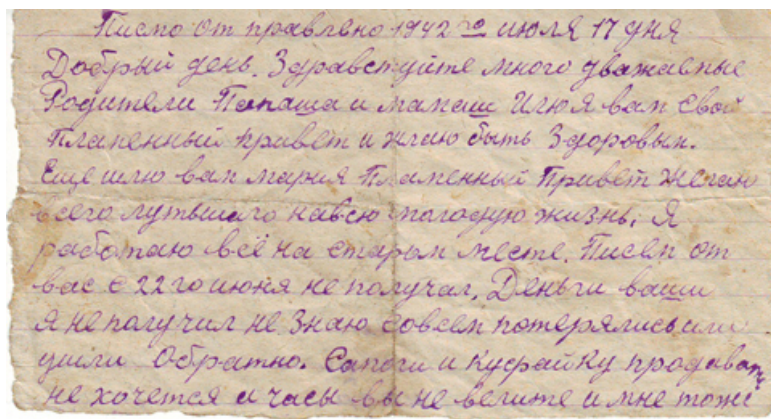 Писмо от правлено 1942 го июля 17 дня
Добрый день. Здравствуйте много уважаемые
Родители Папаша и мамаш Шлю я вам свой
пламенный привет и жлаю быть Здоровым.
Еще шлю вам мария Пламенный Привет желаю
всего лутьшаго навсю молодую жизнь. Я
работаю всё на старом месте. Писем от
вас с 22 го июня не получал. Деньги ваши
я не получил не знаю совсем потерялись или
ушли Обратно. Сапоги и куфайку продавать
не хочется и часы вы не велите и мне тоже